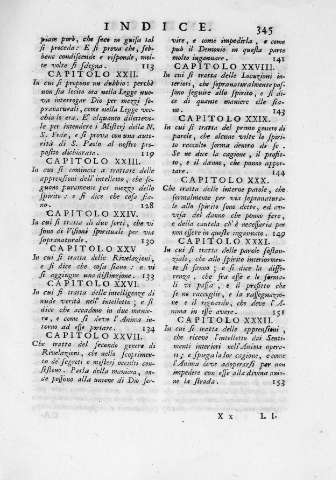 INDICE. 345
piam però, che fece in guisa tal
si proceda: E si prova che, seb-
bene condiscende e risponde, mol-
te volte si sdegna. 113
CAPITOLO XXII.
In cui si propone un dubbio: perchè
non sia lecito ora nella Legge nuo-
va interrogar Dio per mezzi so-
pranaturali, come era nella Legge vec-
chia
le per intendere i Misterj della N.
S. Fede, e si prova con una auto-
rità di S. Paolo al nostro pro-
posito dichiarato. 119
CAPITOLO XXIII.
In cui si comincia a trattare delle
apprensioni dell'intelletto, che se-
guono puramente per mezzo dello
spirito: e si dice che cosa sia-
no. 128
CAPITOLO XXIV.
In cui si tratta di due sorti, che vi
sono di Visioni spirituali per via
sopranaturale. 130
CAPITOLO XXV
In cui si tratta delle Rivelazioni,
e si dice che cosa siano: e vi
si aggiugne una distinzione. 133
CAPITOLO XXVI.
In cui si tratta delle intelligenze di
nude verità nell'intelletto; e si
dice che accadono in due manie-
re, e come si deve l'Anima in-
torno ad esse portare. 134
CAPITOLO XXVII.
Che tratta del secondo genere di
Rivelazioni, che nello scoprimen-
to di segreti e misterj occulti con-
sistono. Parla della maniera, on-
de possono alla unione di Dio ser-
vire, e come impedirla, e come
può il Demonio in questa parte
molto ingannare. 141
CAPITOLO XXVIII.
In cui si tratta delle Locuzioni in-
teriori, che sopranaturalmente pos-
sono seguire allo spirito, e si di-
ce di quante maniere elle sie-
no. 143
CAPITOLO XXIX.
In cui si tratta del primo genere di
parole, che alcune volte lo spiri-
to raccolto forma dentro di se.
Se ne dice la cagione, il profit-
to, e il danno, che ponno appor-
tare. 144
CAPITOLO XXX.
Che tratta delle interne parole, che
formalmente per via sopranatura-
le allo spirito sono dette, ed av-
visa del danno che ponno fare,
e della cautela ch'è necessaria per
non essere in queste ingannato. 149
CAPITOLO XXXI.
In cui si tratta delle parole sostan-
ziali, che allo spirito interiormen-
te si fanno; e si dice la diffe-
renza, che fra esse e le forma-
li vi passa, e il profitto che
se ne raccoglie, e la rassegnazio-
ne e il riguardo, che deve l'A-
nima in esse avere. 151
CAPITOLO XXXII.
In cui si tratta delle apprensioni,
che riceve l'intelletto dai Senti-
menti interiori nell'Anima opera-
ti; e spiega la lor cagione, e come
l'Anima deve adoperarsi per non
impedire con esse alla divina unio-
ne la strada. 153
X x
L I-